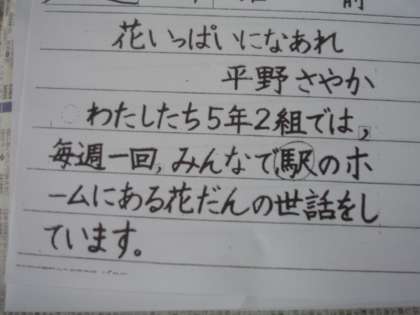 花いっぱいになあれ
平野さやか
わたしたち5年2組では,
毎週一回,みんなで駅のホ
ームにある花だんの世話をし
ています。